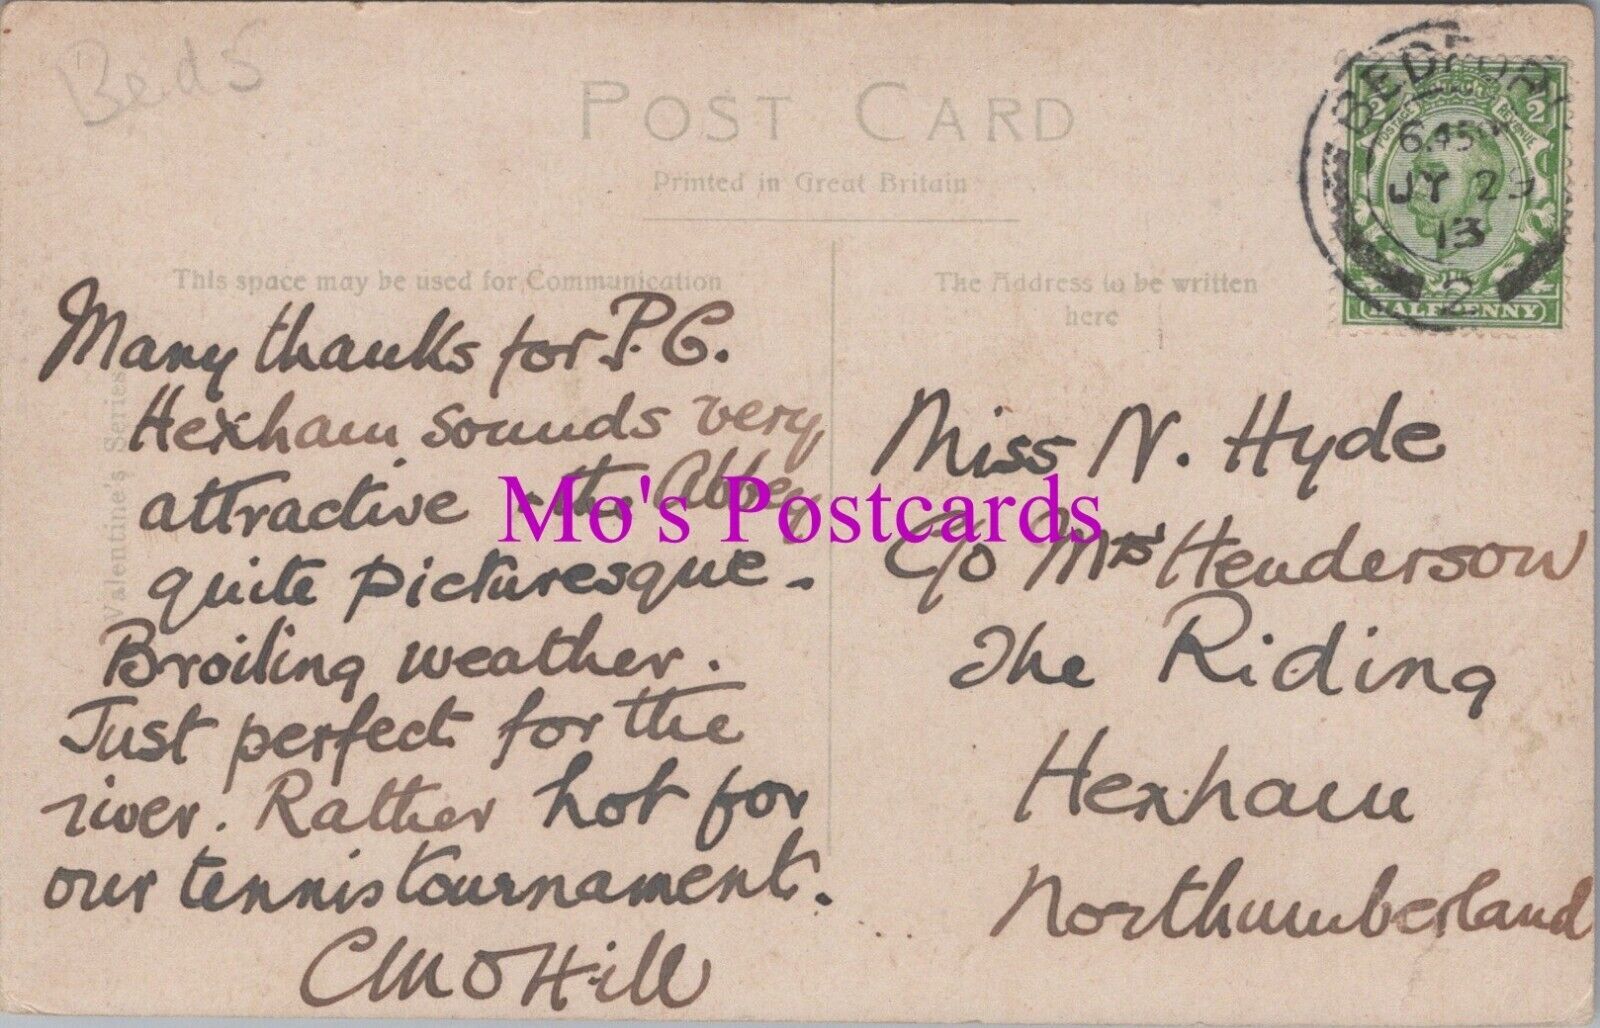 Beds
POST CARD
Printed in Great Britain
BEDFORD
6.45 PM
JY 29
13
2
POSTAGE REVENUE
HALFPENNY
This space may be used for Communication
The Address to be written
here
Valentine's Series
Many thanks for P.C.
Hexham sounds very
attractive - the Abbey
quite picturesque -
Broiling weather.
Just perfect for the
river. Rather hot for
our tennis tournament.
CMO Hill
Miss N. Hyde
C/o Mrs Henderson
The Riding
Hexham
Northumberland
Mo's Postcards